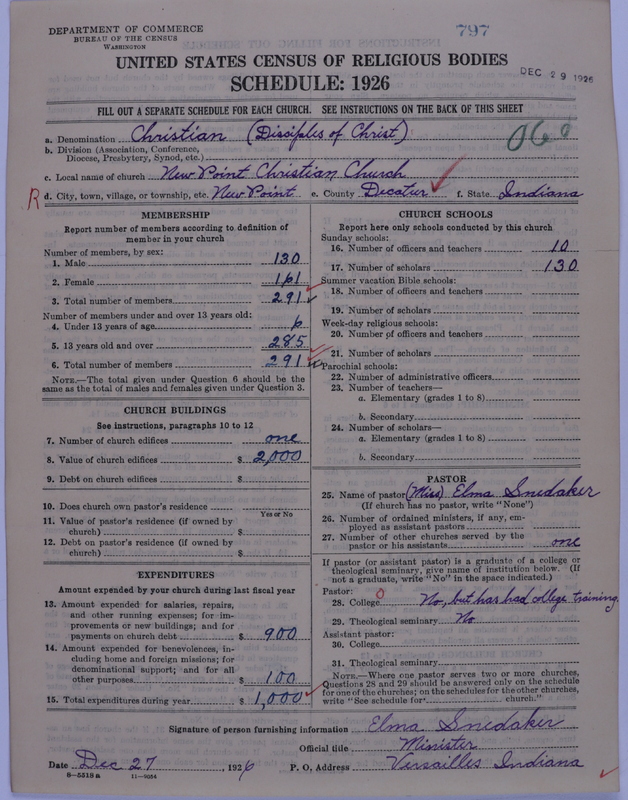 DEPARTMENT OF COMMERCE
BUREAU OF THE CENSUS
WASHINGTON
797
UNITED STATES CENSUS OF RELIGIOUS BODIES
SCHEDULE: 1926
DEC 29 1926
FILL OUT A SEPARATE SCHEDULE FOR EACH CHURCH. SEE INSTRUCTIONS ON THE BACK OF THIS SHEET
a. Denomination Christian (Disciples of Christ)
060
b. Division (Association, Conference, Diocese, Presbytery, Synod, etc.)
c. Local name of church New Point Christian Church
R d. City, town, village, or township, etc. New Point e. County Decatur f. State Indiana
MEMBERSHIP
Report number of members according to definition of
member in your church
Number of members, by sex:
1. Male 130
2. Female 161
3. Total number of members 291
Number of members under and over 13 years old:
4. Under 13 years of age 6
5. 13 years old and over 285
6. Total number of members 291
NOTE.—The total given under Question 6 should be the
same as the total of males and females given under Question 3.
CHURCH BUILDINGS
See instructions, paragraphs 10 to 12
7. Number of church edifices one
8. Value of church edifices $ 2,000
9. Debt on church edifices $
10. Does church own pastor's residence
Yes or No
11. Value of pastor's residence (if owned by
church) $
12. Debt on pastor's residence (if owned by
church) $
EXPENDITURES
Amount expended by your church during last fiscal year
13. Amount expended for salaries, repairs,
and other running expenses; for im-
provements or new buildings; and for
payments on church debt $ 900
14. Amount expended for benevolences, in-
cluding home and foreign missions; for
denominational support; and for all
other purposes $ 100
15. Total expenditures during year $ 1,000
CHURCH SCHOOLS
Report here only schools conducted by this church
Sunday schools:
16. Number of officers and teachers 10
17. Number of scholars 130
Summer vacation Bible schools:
18. Number of officers and teachers
19. Number of scholars
Week-day religious schools:
20. Number of officers and teachers
21. Number of scholars
Parochial schools:
22. Number of administrative officers
23. Number of teachers—
a. Elementary (grades 1 to 8)
b. Secondary
24. Number of scholars—
a. Elementary (grades 1 to 8)
b. Secondary
PASTOR
25. Name of pastor (Miss) Elma Snedaker
(If church has no pastor, write "None")
26. Number of ordained ministers, if any, em-
ployed as assistant pastors
27. Number of other churches served by the
pastor or his assistants one
If pastor (or assistant pastor) is a graduate of a college or
theological seminary, give name of institution below. (If
not a graduate, write "No" in the space indicated.)
Pastor:
28. College 0 No, but has had college training.
29. Theological seminary No
Assistant pastor:
30. College
31. Theological seminary
NOTE.—Where one pastor serves two or more churches,
Questions 28 and 29 should be answered only on the schedule
for one of the churches; on the schedules for the other churches,
write "See schedule for church."
Signature of person furnishing information Elma Snedaker
Official title Minister
Date Dec 27, 1926 P. O. Address Versailles Indiana
6-5518a 11-9054